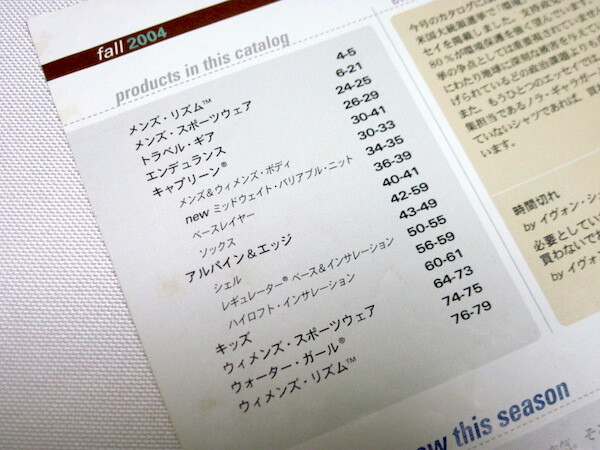 fall 2004
products in this catalog
メンズ・リズム™ 4-5
メンズ・スポーツウェア 6-21
トラベル・ギア 24-25
エンデュランス 26-29
キャプリーン® 30-41
メンズ&ウィメンズ・ボディ 30-33
new ミッドウェイト・バリアブル・ニット 34-35
ベースレイヤー 36-39
ソックス 40-41
アルパイン&エッジ 42-59
シェル 43-49
レギュレーター® ベース&インサレーション 50-55
ハイロフト・インサレーション 56-59
キッズ 60-61
ウィメンズ・スポーツウェア 64-73
ウォーター・ガール® 74-75
ウィメンズ・リズム™ 76-79
今号のカタログには
米国大統領選挙で「環境
セイを掲載しました。
80%が環境保護を強く望んでいます
挙の争点としては重要視されていませ
にわたり地球に深刻な被害を与えて
げられているどの政治課題よりも
また、もうひとつのエッセイでは、
集担当であるノラ・ギャラガー
ていないシャツであれば、買わ
います。
時間切れ
by イヴォン・シ
必要としてい
買わないでね
by イヴォ
this season